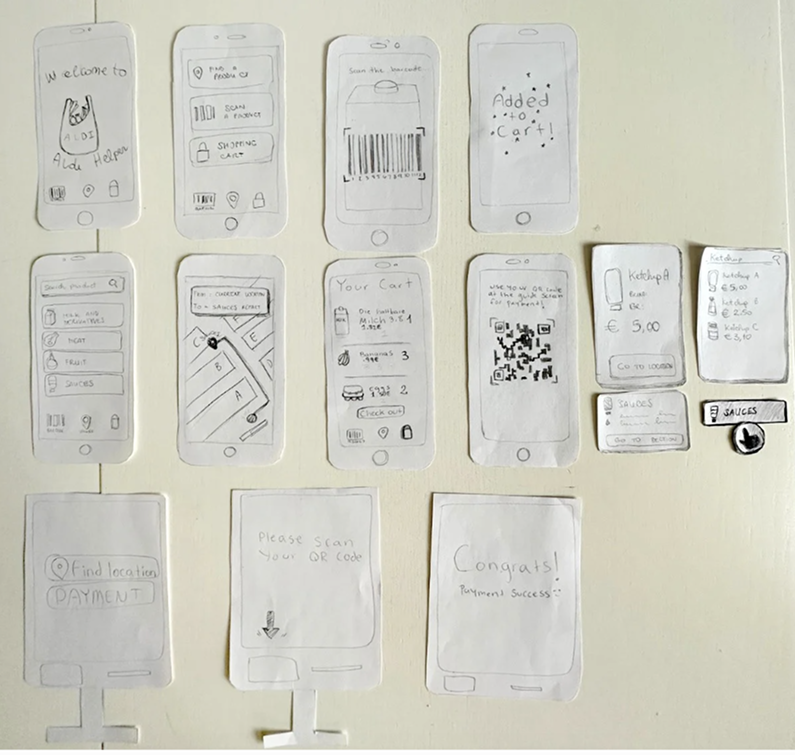 Welcome to
ALDI
Aldi Helper
FIND A
PRODUCT
SCAN
A PRODUCT
SHOPPING
CART
Scan the barcode
Added
to
Cart!
Search product
MEAT
FRUIT
SAUCES
FROM: CURRENT LOCATION
TO: SAUCES
C
E
B
A
Your Cart
Die haltbare
Milch 3.5 1
Bananas 3
Eggs 2
Check out
USE YOUR QR CODE
at the
for payment!
Ketchup A
€ 5,00
GO TO
Ketchup
Ketchup A
€ 5,00
Ketchup B
€ 2.50
Ketchup C
SAUCES
GO TO SECTION
SAUCES
Find location
PAYMENT
Please Scan
Your QR Code
Congrats!
Payment Success